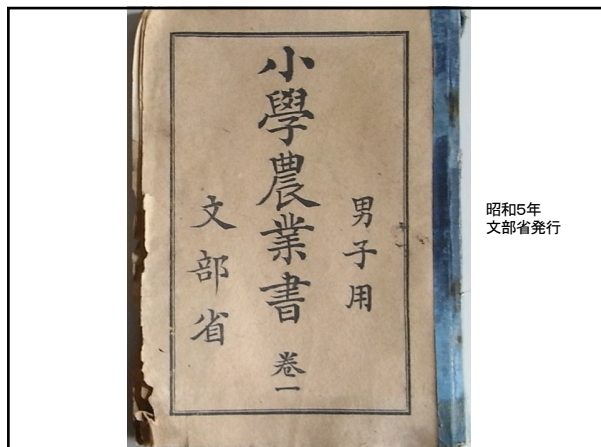 男子用
小學農業書 卷一
文部省
昭和5年
文部省発行